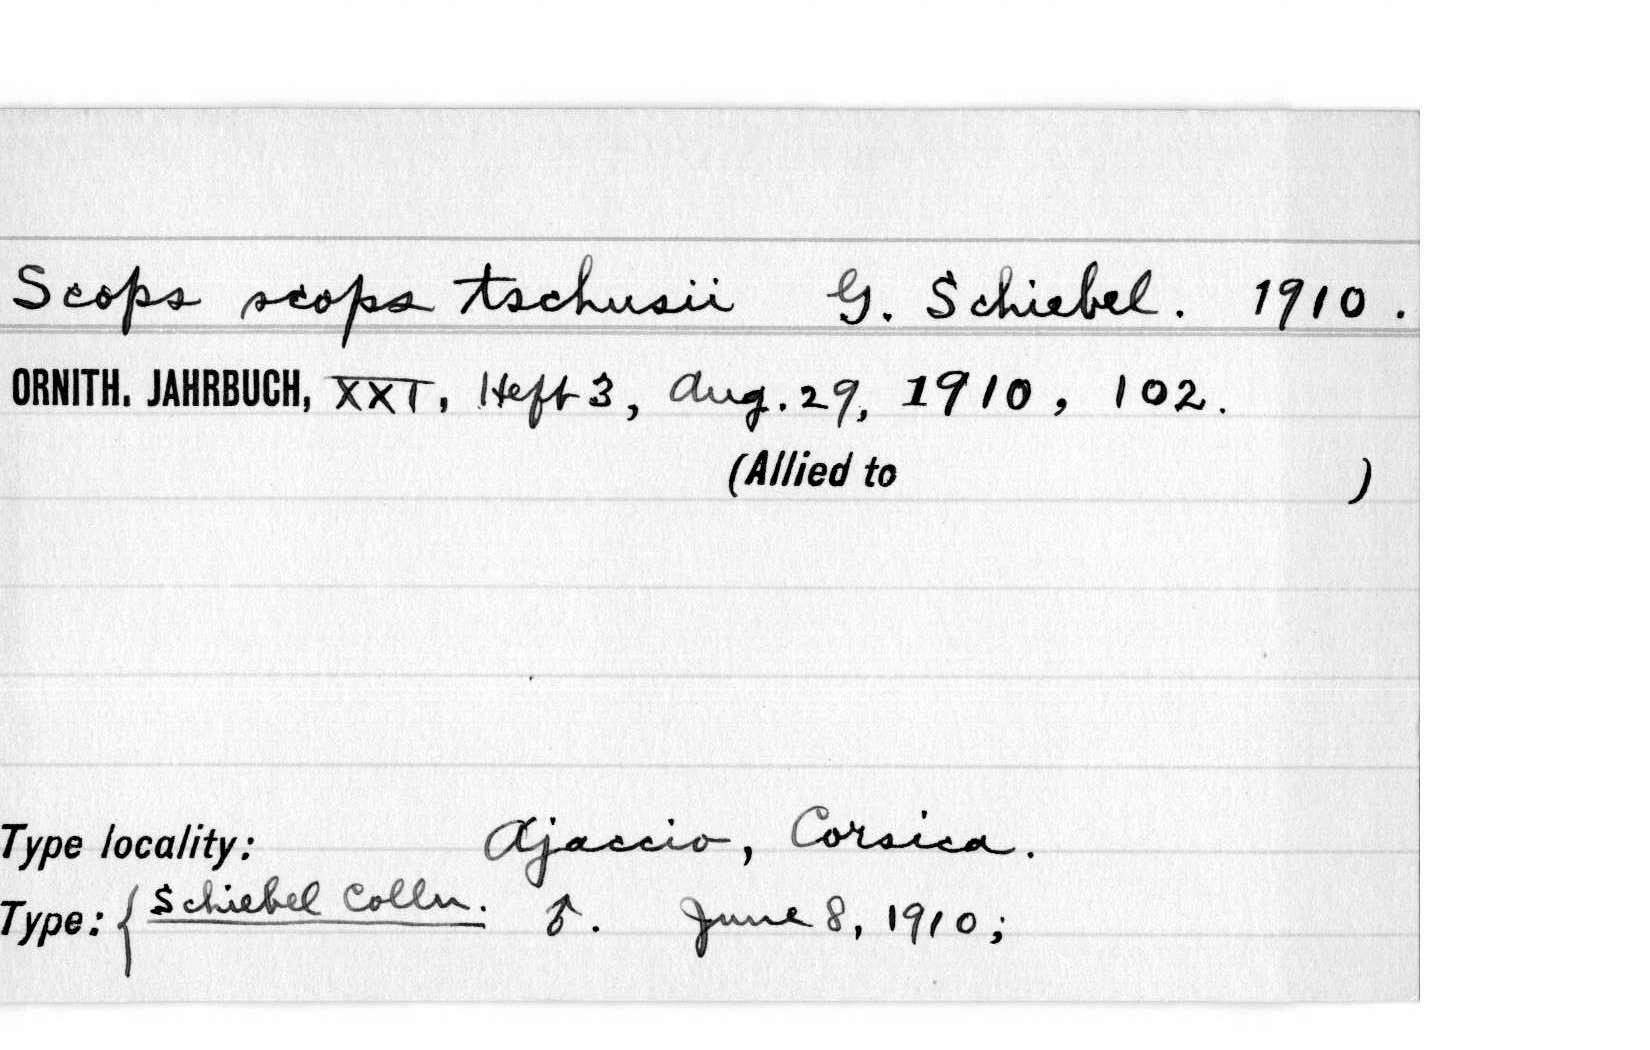 Scops scops tschusii G. Schiebel. 1910.
ORNITH. JAHRBUCH, XXI, Heft 3, Aug. 29, 1910, 102.
(Allied to )
Type locality: Ajaccio, Corsica.
Type: { Schiebel Colln. ♂. June 8, 1910;